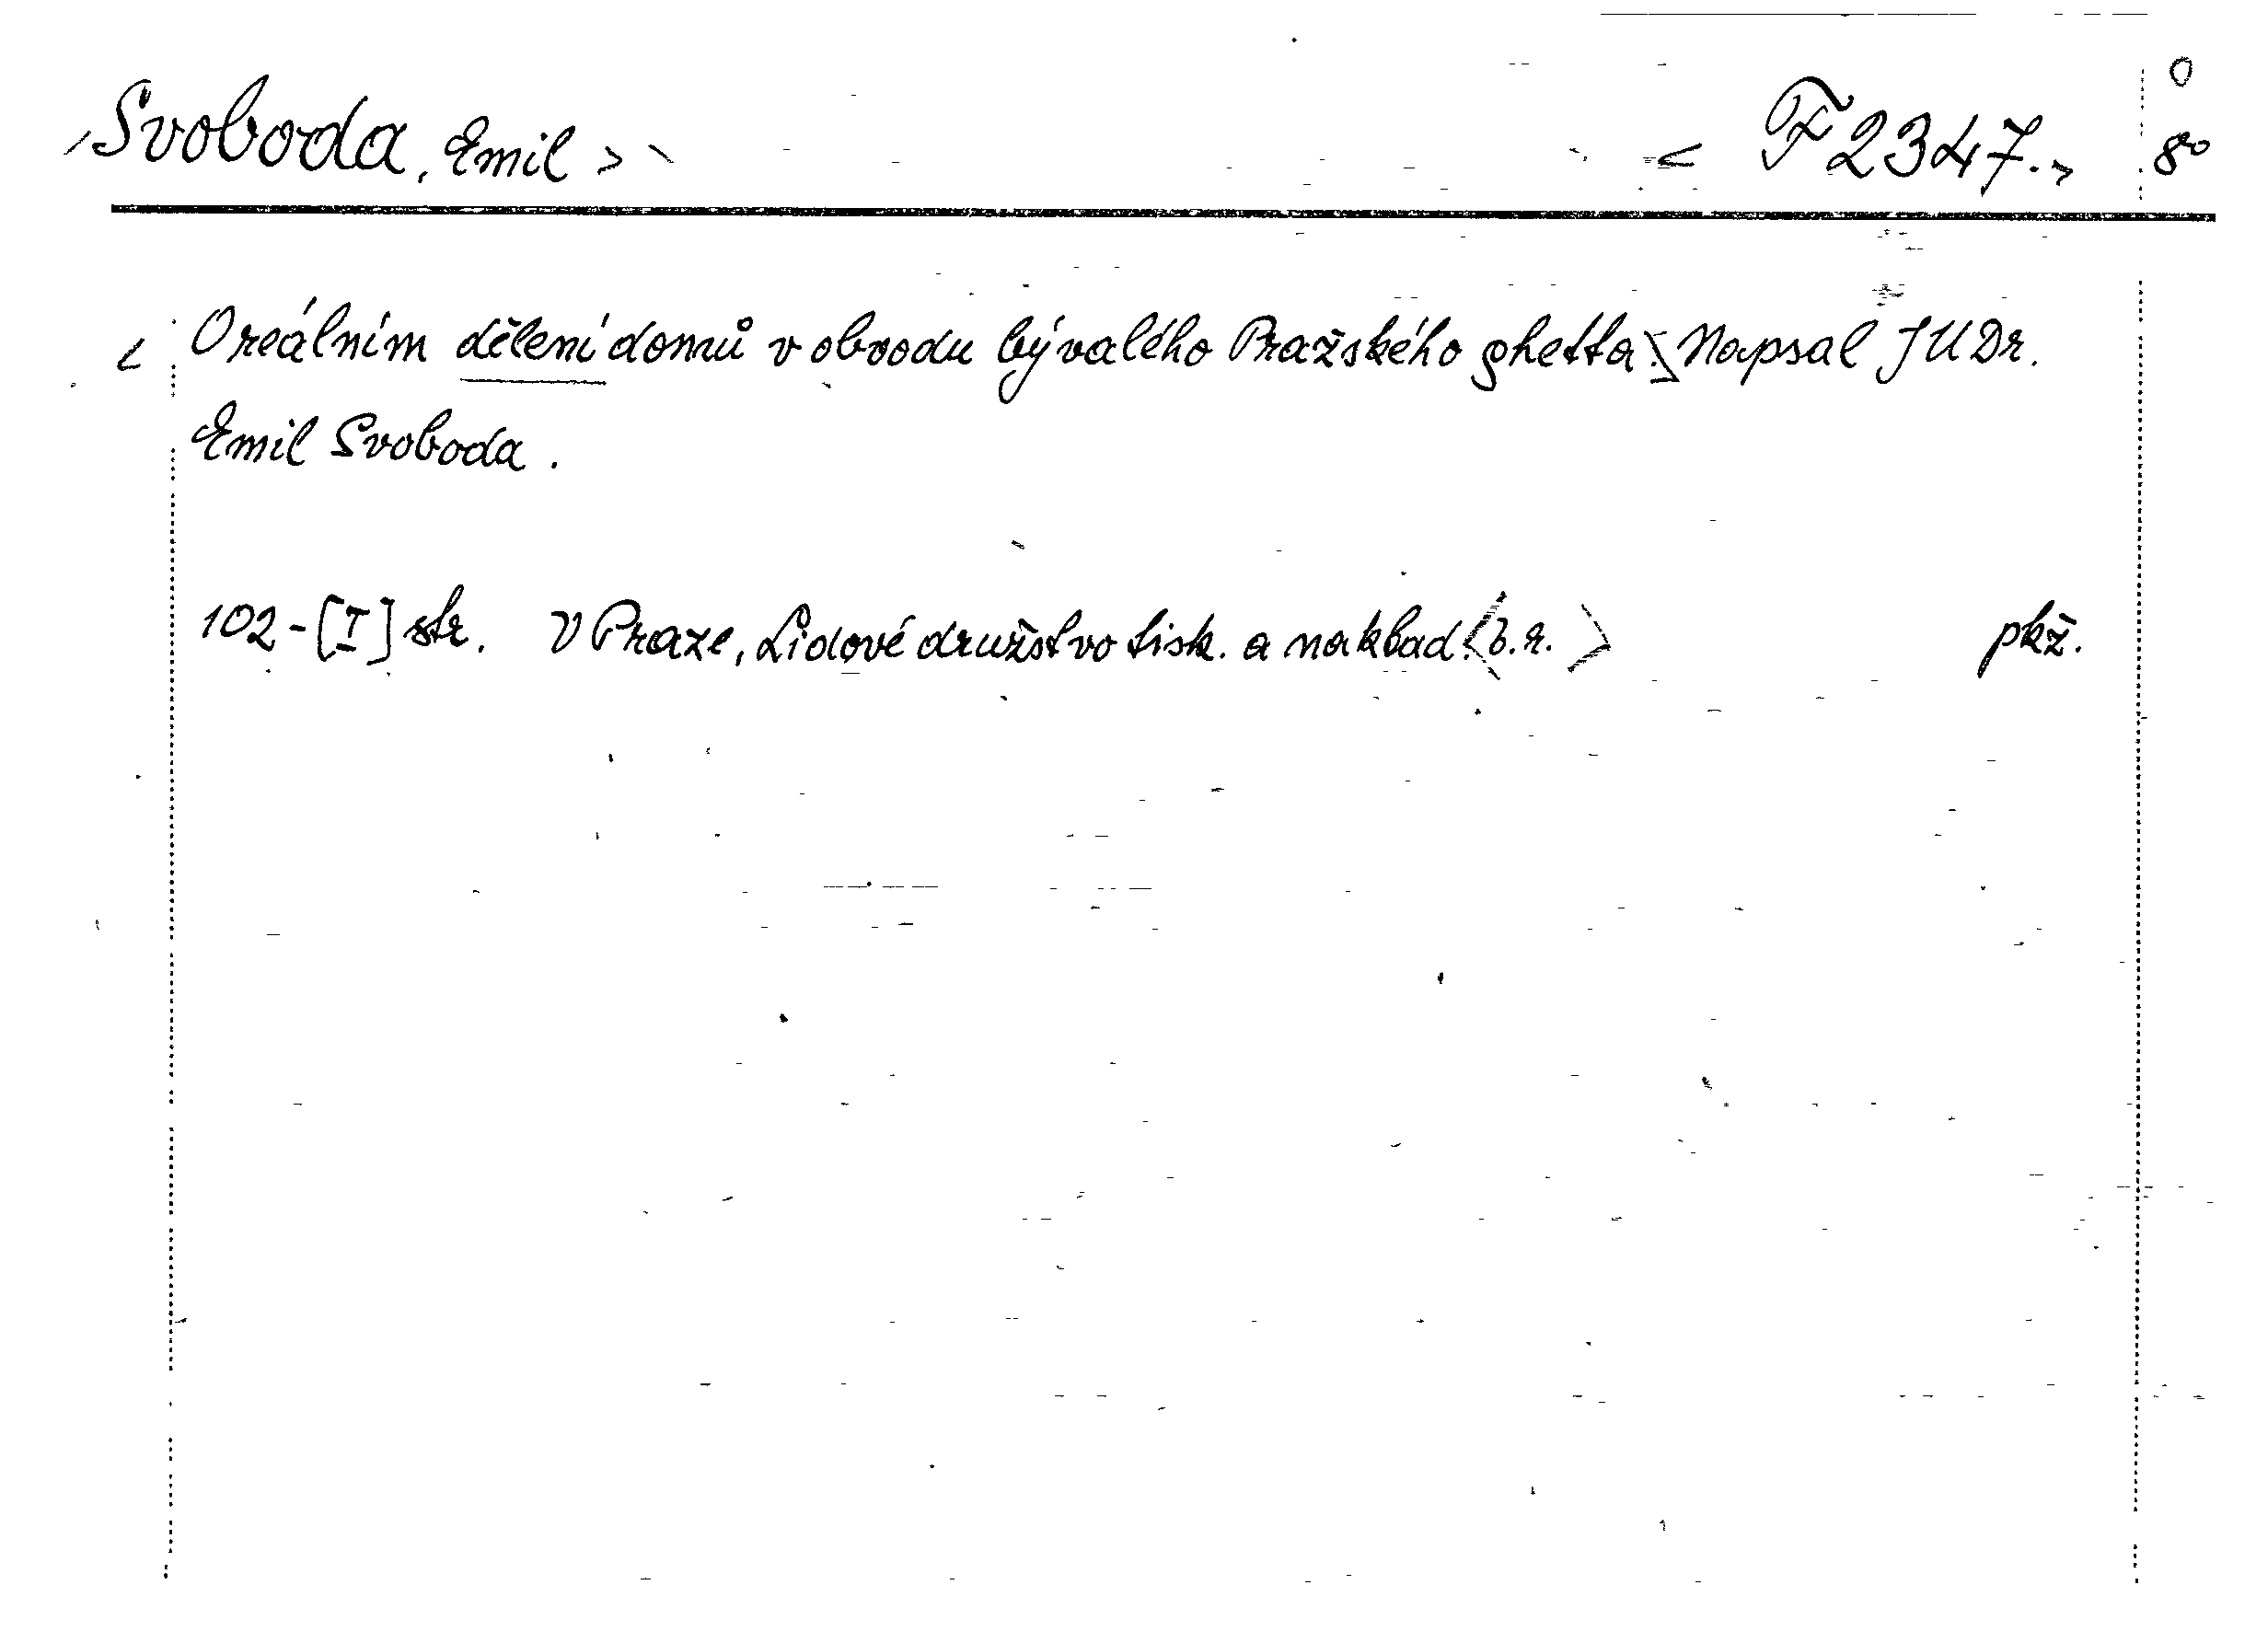 Svoboda, Emil > < F 2347. > 8°
< O reálním dělení domů v obvodu bývalého Pražského ghetta.> Napsal JUDr.
Emil Svoboda.
102-[I] str. V Praze, Lidové družstvo tisk. a naklad. <b.r.> pkž.